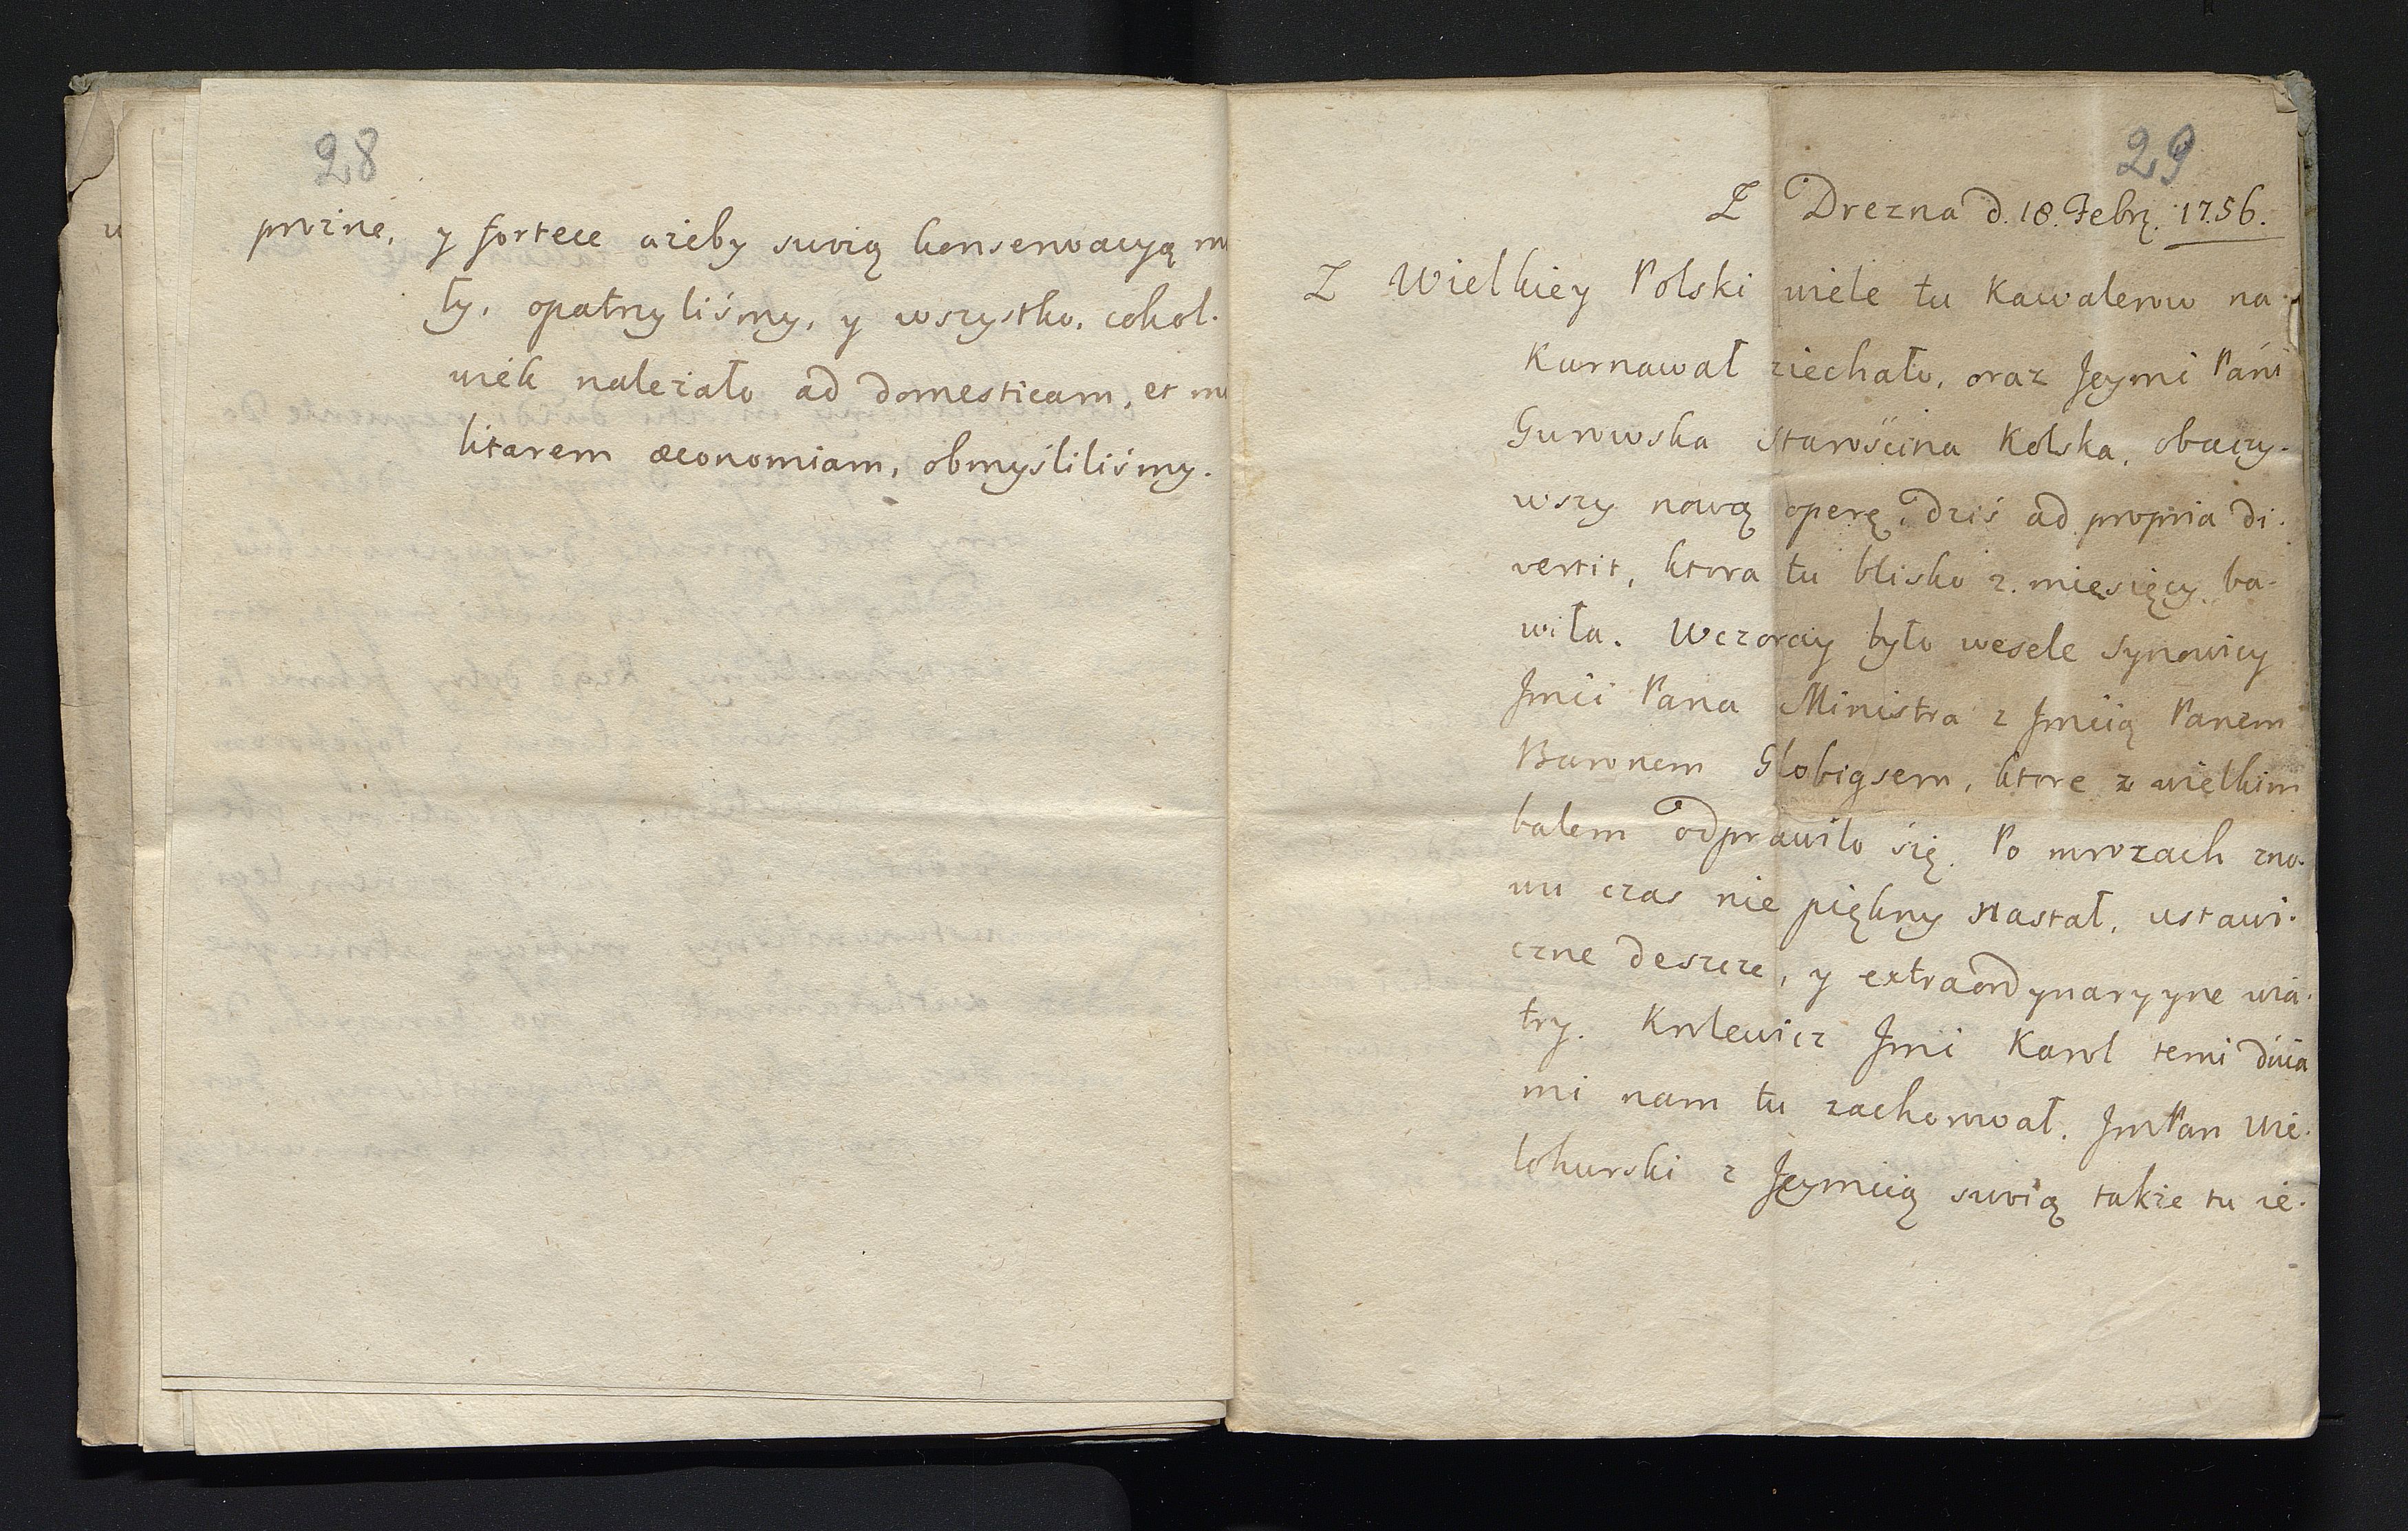 28
prożne, y fortece ażeby swoią konserwacyą m
ły, opatrzyliśmy, y wszystko, cokol-
wiek należało ad domesticam, et mi
litarem œconomiam, obmyśliliśmy.
29
Z Drezna d. 18. Febrz. 1756.
Z Wielkiey Polski wiele tu Kawalerow na
Karnawał ziechało, oraz Jeymć Pani
Gurowska Starościna Kolska, obaczy-
wszy nową operę, dziś ad propria di-
vertit, ktora tu blisko 2. miesięcy ba-
wiła. Wczoray było wesele Synowicy
Jmci Pana Ministra z Jmcią Panem
Baronem Globigsem, ktore z wielkim
balem odprawiło się. Po mrozach zno-
wu czas nie piękny nastał, ustawi-
czne deszcze, y extraordynaryyne wia-
try. Krolewicz Jmć Karol temi dnia
mi nam tu zachorował. JmPan Wie-
lohurski z Jeymcią swoią także tu ie-